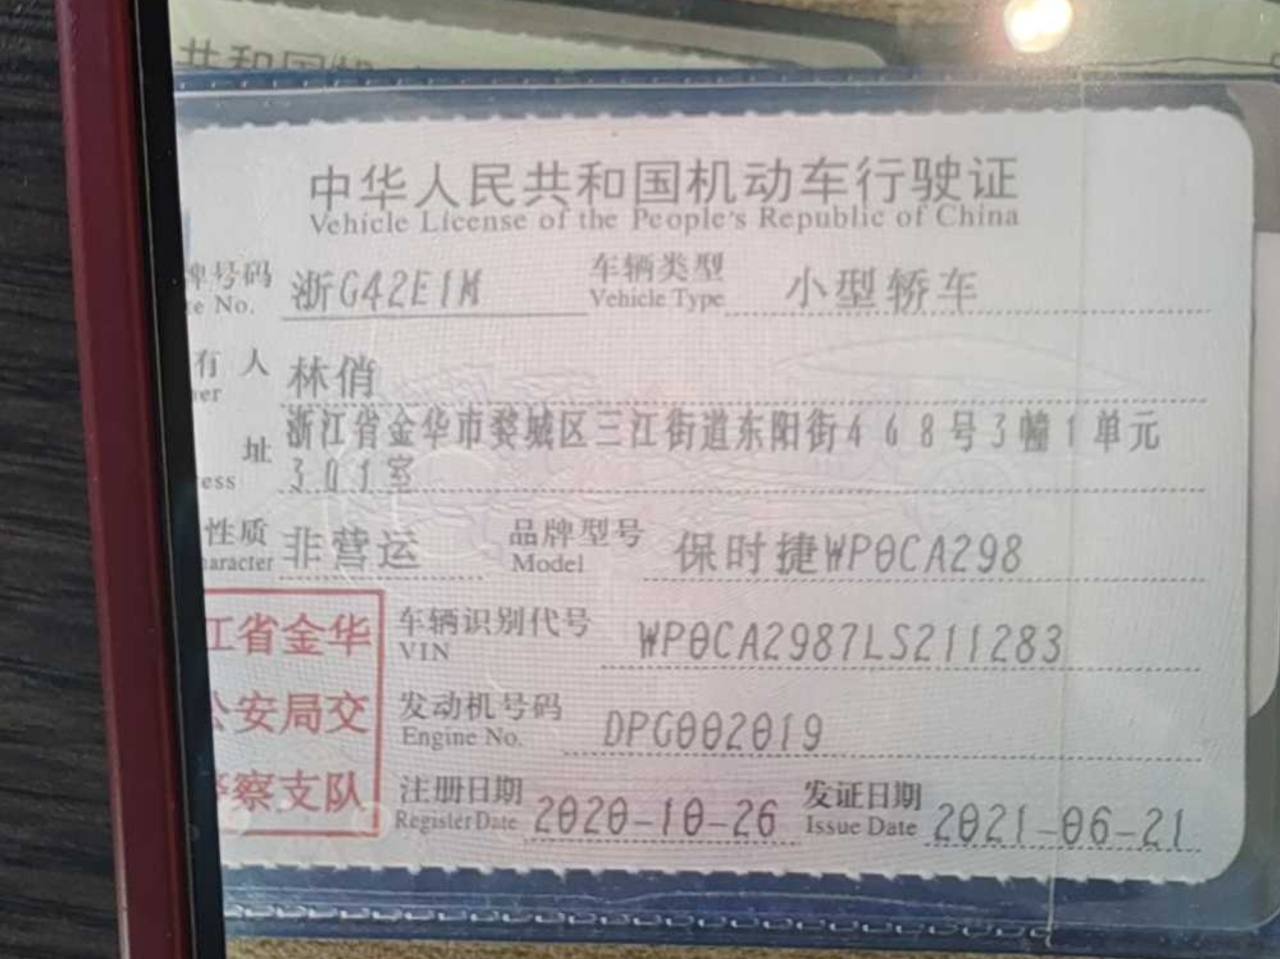 共和国机
中华人民共和国机动车行驶证
Vehicle License of the People's Republic of China
牌号码 浙G42E1M 车辆类型 小型轿车
e No. Vehicle Type
有人 林俏
er
浙江省金华市婺城区三江街道东阳街468号3幢1单元
址 301室
ess
性质 非营运 品牌型号 保时捷WP0CA298
aracter Model
江省金华 车辆识别代号 WP0CA2987LS211283
VIN
公安局交 发动机号码 DPG002019
Engine No.
察支队 注册日期 2020-10-26 发证日期 2021-06-21
Register Date Issue Date